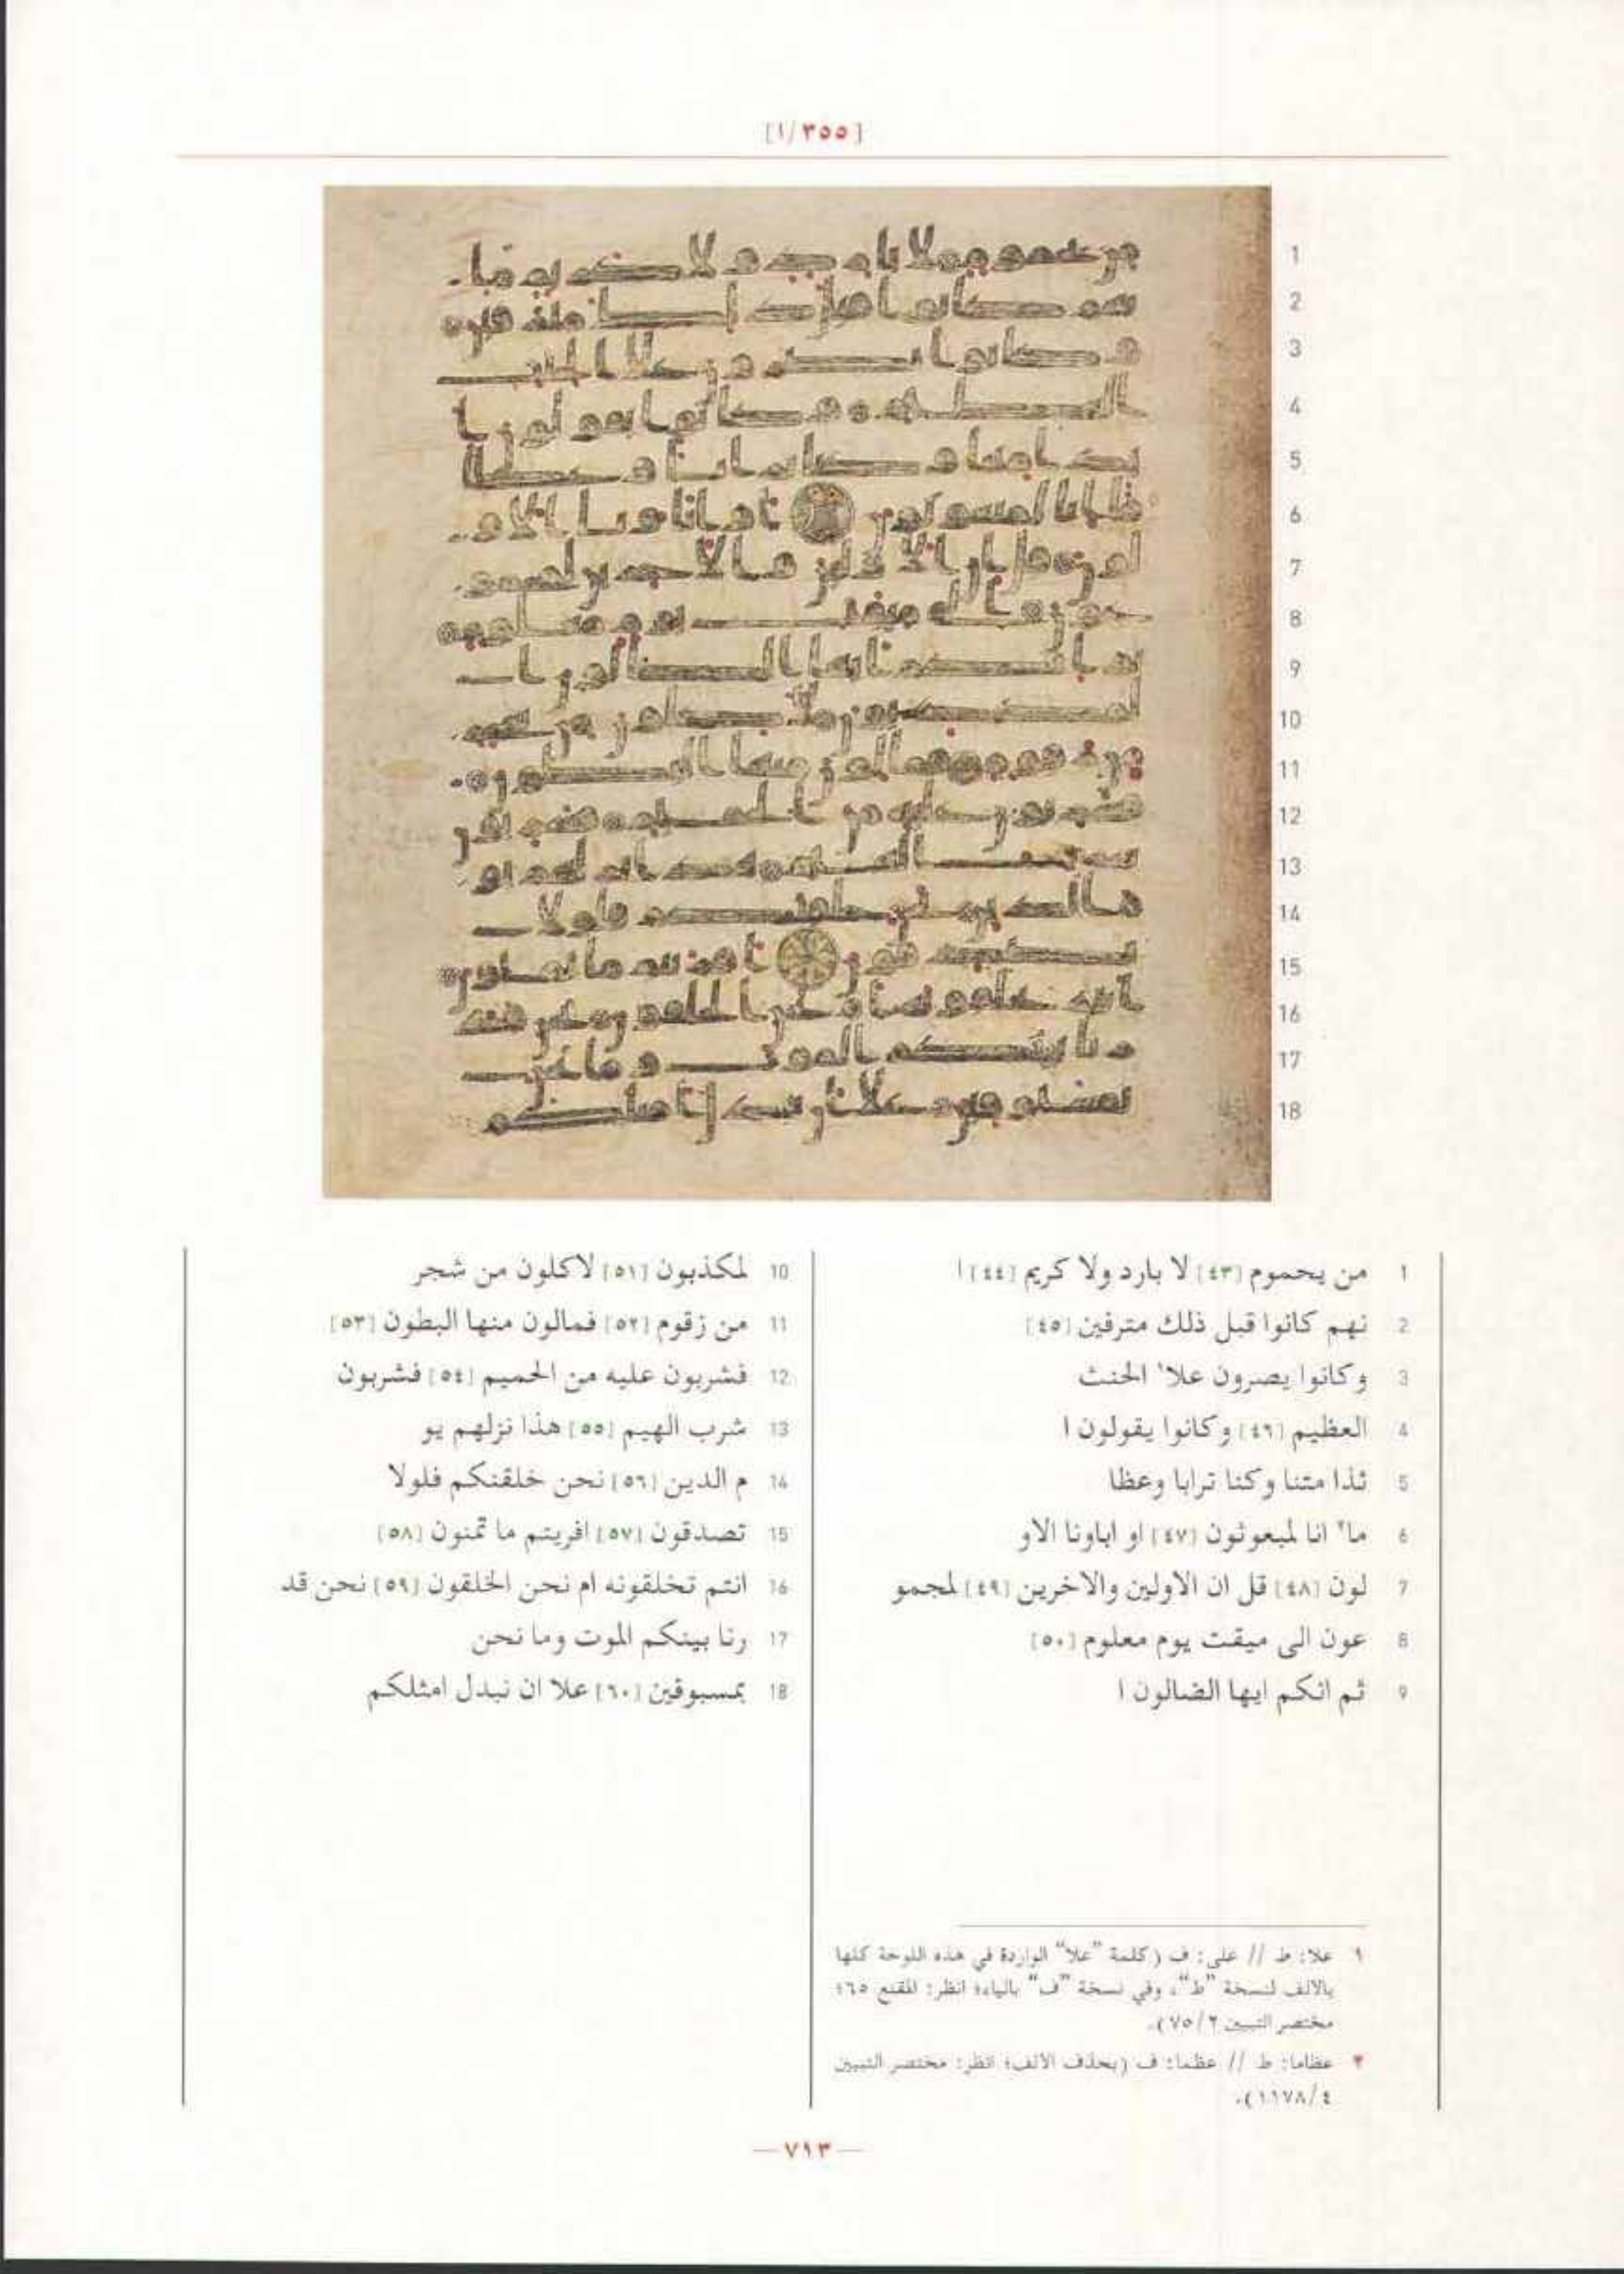 [٣٥٥/١]
1 من يحموم [٤٣] لا بارد ولا كريم [٤٤] ا
2 نهم كانوا قبل ذلك مترفين [٤٥]
3 وكانوا يصرون علا١ الحنث
4 العظيم [٤٦] وكانوا يقولون ا
5 ئذا متنا وكنا ترابا وعظا
6 ما٢ انا لمبعوثون [٤٧] او اباونا الاو
7 لون [٤٨] قل ان الاولين والاخرين [٤٩] لمجمو
8 عون الى ميقت يوم معلوم [٥٠]
9 ثم انكم ايها الضالون ا
10 لمكذبون [٥١] لاكلون من شجر
11 من زقوم [٥٢] فمالون منها البطون [٥٣]
12 فشربون عليه من الحميم [٥٤] فشربون
13 شرب الهيم [٥٥] هذا نزلهم يو
14 م الدين [٥٦] نحن خلقنكم فلولا
15 تصدقون [٥٧] افريتم ما تمنون [٥٨]
16 انتم تخلقونه ام نحن الخلقون [٥٩] نحن قد
17 رنا بينكم الموت وما نحن
18 بمسبوقين [٦٠] علا ان نبدل امثلكم
١ علا: ط // على: ف (كلمة "علا" الواردة في هذه اللوحة كلها
بالالف لنسخة "ط"، وفي نسخة "ف" بالياء؛ انظر: المقنع ٦٥؛
مختصر التبيين ٧٥/٢).
٢ عظاما: ط // عظما: ف (بحذف الالف؛ انظر: مختصر التبيين
١١٧٨/٤).
— ٧١٣ —